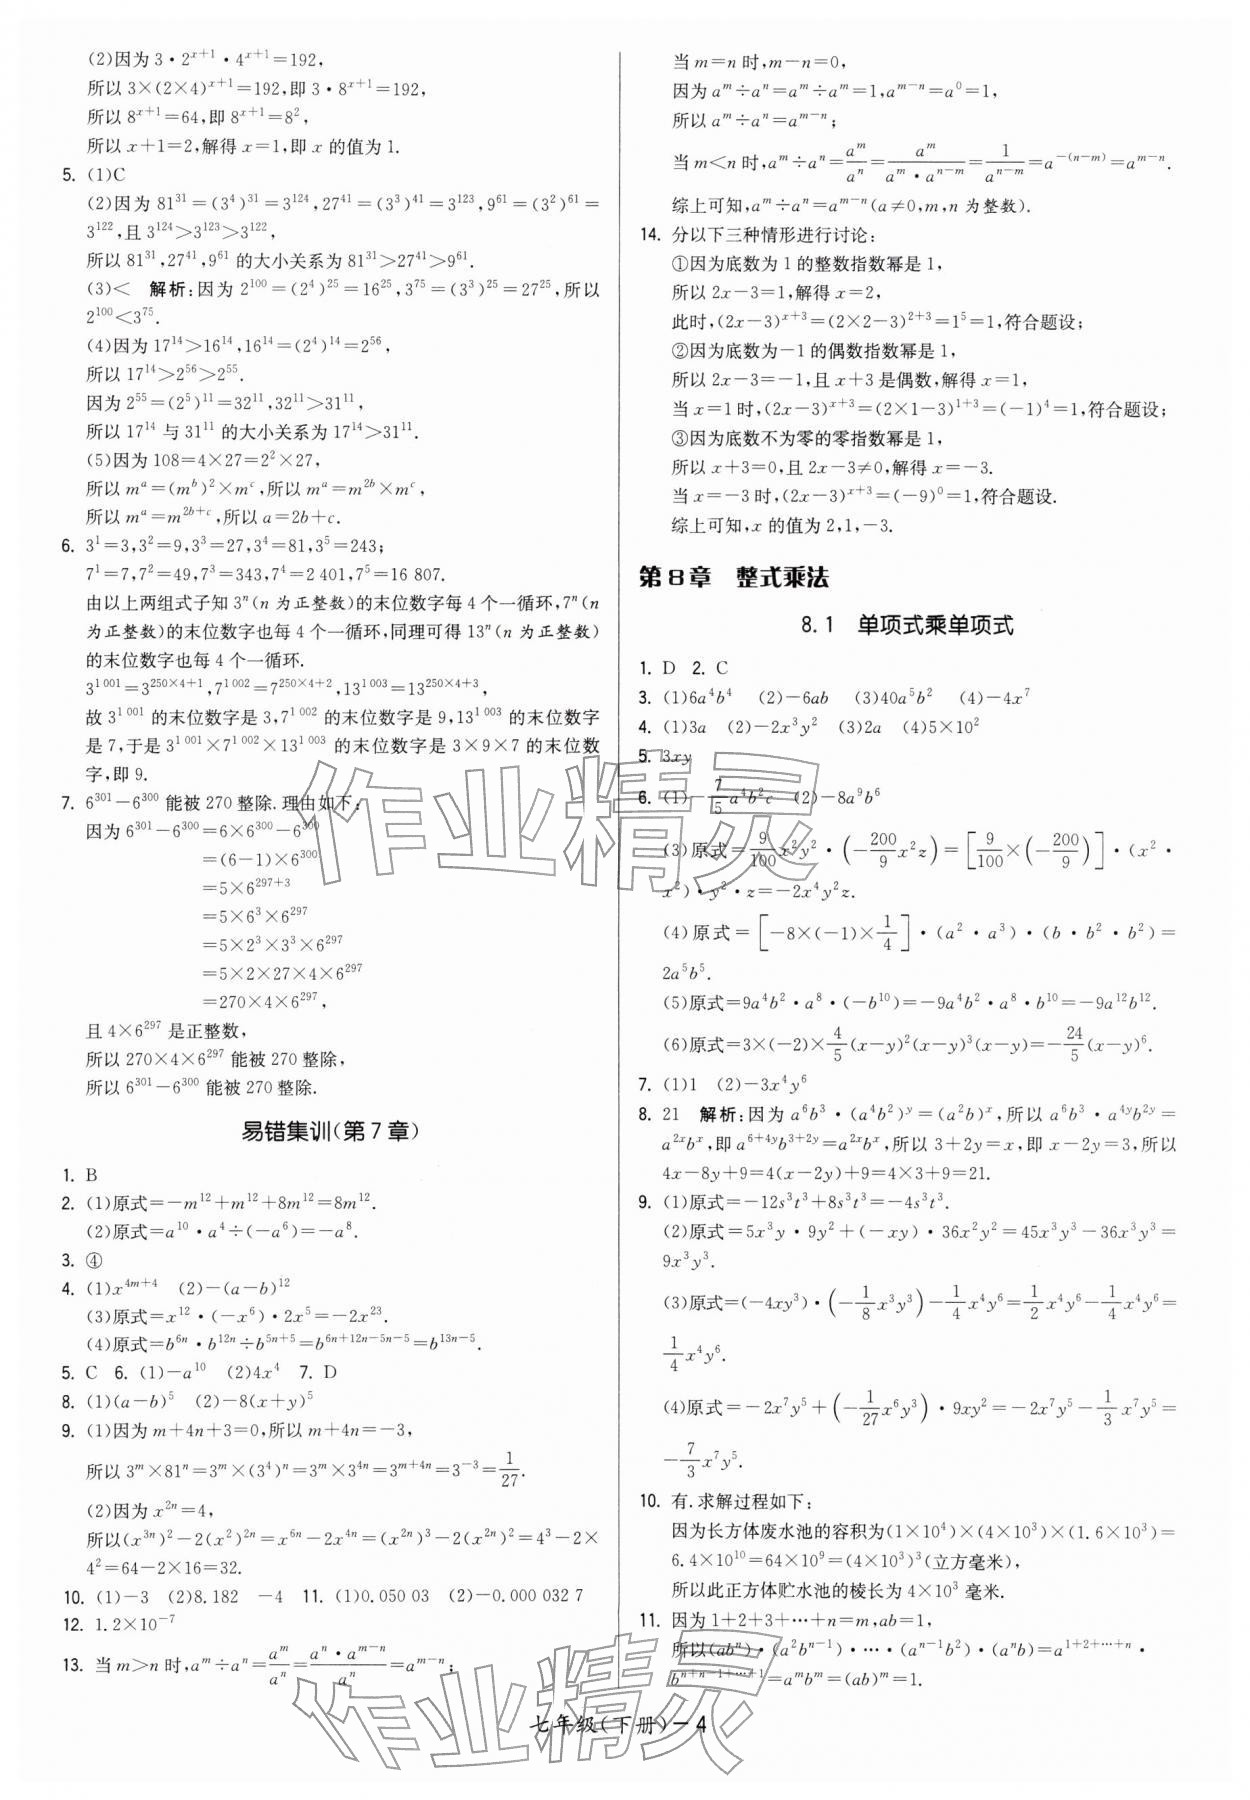 (2)因为 3·2^{x+1}·4^{x+1}=192,
所以 3×(2×4)^{x+1}=192,即 3·8^{x+1}=192,
所以 8^{x+1}=64,即 8^{x+1}=8²,
所以 x+1=2,解得 x=1,即 x 的值为 1.
5. (1)C
(2)因为 81^{31}=(3^4)^{31}=3^{124},27^{41}=(3^3)^{41}=3^{123},9^{61}=(3^2)^{61}=
3^{122},且 3^{124}>3^{123}>3^{122},
所以 81^{31},27^{41},9^{61} 的大小关系为 81^{31}>27^{41}>9^{61}.
(3)< 解析:因为 2^{100}=(2^4)^{25}=16^{25},3^{75}=(3^3)^{25}=27^{25},所以
2^{100}<3^{75}.
(4)因为 17^{14}>16^{14},16^{14}=(2^4)^{14}=2^{56},
所以 17^{14}>2^{56}>2^{55}.
因为 2^{55}=(2^5)^{11}=32^{11},32^{11}>31^{11},
所以 17^{14} 与 31^{11} 的大小关系为 17^{14}>31^{11}.
(5)因为 108=4×27=2²×27,
所以 m^a=(m^b)^2×m^c,所以 m^a=m^{2b}×m^c,
所以 m^a=m^{2b+c},所以 a=2b+c.
6. 3^1=3,3^2=9,3^3=27,3^4=81,3^5=243;
7^1=7,7^2=49,7^3=343,7^4=2 401,7^5=16 807.
由以上两组式子知 3^n(n 为正整数)的末位数字每 4 个一循环,7^n(n
为正整数)的末位数字也每 4 个一循环,同理可得 13^n(n 为正整数)
的末位数字也每 4 个一循环.
3^{1 001}=3^{250×4+1},7^{1 002}=7^{250×4+2},13^{1 003}=13^{250×4+3},
故 3^{1 001} 的末位数字是 3,7^{1 002} 的末位数字是 9,13^{1 003} 的末位数字
是 7,于是 3^{1 001}×7^{1 002}×13^{1 003} 的末位数字是 3×9×7 的末位数
字,即 9.
7. 6^{301}-6^{300} 能被 270 整除.理由如下:
因为 6^{301}-6^{300}=6×6^{300}-6^{300}
=(6-1)×6^{300}
=5×6^{297+3}
=5×6^3×6^{297}
=5×2^3×3^3×6^{297}
=5×2×27×4×6^{297}
=270×4×6^{297},
且 4×6^{297} 是正整数,
所以 270×4×6^{297} 能被 270 整除,
所以 6^{301}-6^{300} 能被 270 整除.
易错集训(第 7 章)
1. B
2. (1)原式=-m^{12}+m^{12}+8m^{12}=8m^{12}.
(2)原式=a^{10}·a^4÷(-a^6)=-a^8.
3. ④
4. (1)x^{4m+4} (2)-(a-b)^{12}
(3)原式=x^{12}·(-x^6)·2x^5=-2x^{23}.
(4)原式=b^{6n}·b^{12n}÷b^{5n+5}=b^{6n+12n-5n-5}=b^{13n-5}.
5. C 6. (1)-a^{10} (2)4x^4 7. D
8. (1)(a-b)^5 (2)-8(x+y)^5
9. (1)因为 m+4n+3=0,所以 m+4n=-3,
所以 3^m×81^n=3^m×(3^4)^n=3^m×3^{4n}=3^{m+4n}=3^{-3}=1/27.
(2)因为 x^{2n}=4,
所以(x^{3n})^2-2(x^2)^{2n}=x^{6n}-2x^{4n}=(x^{2n})^3-2(x^{2n})^2=4^3-2×
4^2=64-2×16=32.
10. (1)-3 (2)8.182 -4 11. (1)0.050 03 (2)-0.000 032 7
12. 1.2×10^{-7}
13. 当 m>n 时,a^m÷a^n=a^m/a^n=(a^n·a^{m-n})/a^n=a^{m-n};
当 m=n 时,m-n=0,
因为 a^m÷a^n=a^m÷a^m=1,a^{m-n}=a^0=1,
所以 a^m÷a^n=a^{m-n};
当 m<n 时,a^m÷a^n=a^m/a^n=a^m/(a^m·a^{n-m})=1/a^{n-m}=a^{-(n-m)}=a^{m-n}.
综上可知,a^m÷a^n=a^{m-n}(a≠0,m,n 为整数).
14. 分以下三种情形进行讨论:
①因为底数为 1 的整数指数幂是 1,
所以 2x-3=1,解得 x=2,
此时,(2x-3)^{x+3}=(2×2-3)^{2+3}=1^5=1,符合题设;
②因为底数为-1 的偶数指数幂是 1,
所以 2x-3=-1,且 x+3 是偶数,解得 x=1,
当 x=1 时,(2x-3)^{x+3}=(2×1-3)^{1+3}=(-1)^4=1,符合题设;
③因为底数不为零的零指数幂是 1,
所以 x+3=0,且 2x-3≠0,解得 x=-3.
当 x=-3 时,(2x-3)^{x+3}=(-9)^0=1,符合题设.
综上可知,x 的值为 2,1,-3.
第 8 章 整式乘法
8.1 单项式乘单项式
1. D 2. C
3. (1)6a^4b^4 (2)-6ab (3)40a^5b^2 (4)-4x^7
4. (1)3a (2)-2x^3y^2 (3)2a (4)5×10^2
5. 3xy
6. (1)-7/5a^4b^2c (2)-8a^9b^6
(3)原式=9/100x^2y^2·(-200/9x^2z)=[9/100×(-200/9)]·(x^2·
x^2)·y^2·z=-2x^4y^2z.
(4)原式=[-8×(-1)×1/4]·(a^2·a^3)·(b·b^2·b^2)=
2a^5b^5.
(5)原式=9a^4b^2·a^8·(-b^{10})=-9a^4b^2·a^8·b^{10}=-9a^{12}b^{12}.
(6)原式=3×(-2)×4/5(x-y)^2(x-y)^3(x-y)=-24/5(x-y)^6.
7. (1)1 (2)-3x^4y^6
8. 21 解析:因为 a^6b^3·(a^4b^2)^y=(a^2b)^x,所以 a^6b^3·a^{4y}b^{2y}=
a^{2x}b^x,即 a^{6+4y}b^{3+2y}=a^{2x}b^x,所以 3+2y=x,即 x-2y=3,所以
4x-8y+9=4(x-2y)+9=4×3+9=21.
9. (1)原式=-12s^3t^3+8s^3t^3=-4s^3t^3.
(2)原式=5x^3y·9y^2+(-xy)·36x^2y^2=45x^3y^3-36x^3y^3=
9x^3y^3.
(3)原式=(-4xy^3)·(-1/8x^3y^3)-1/4x^4y^6=1/2x^4y^6-1/4x^4y^6=
1/4x^4y^6.
(4)原式=-2x^7y^5+(-1/27x^6y^3)·9xy^2=-2x^7y^5-1/3x^7y^5=
-7/3x^7y^5.
10. 有.求解过程如下:
因为长方体废水池的容积为(1×10^4)×(4×10^3)×(1.6×10^3)=
6.4×10^{10}=64×10^9=(4×10^3)^3(立方毫米),
所以此正方体贮水池的棱长为 4×10^3 毫米.
11. 因为 1+2+3+…+n=m,ab=1,
所以(ab^n)·(a^2b^{n-1})·…·(a^{n-1}b^2)·(a^nb)=a^{1+2+…+n}·
b^{n+n-1+…+1}=a^mb^m=(ab)^m=1.
七年级(下册)-4
作业精灵
作业精灵